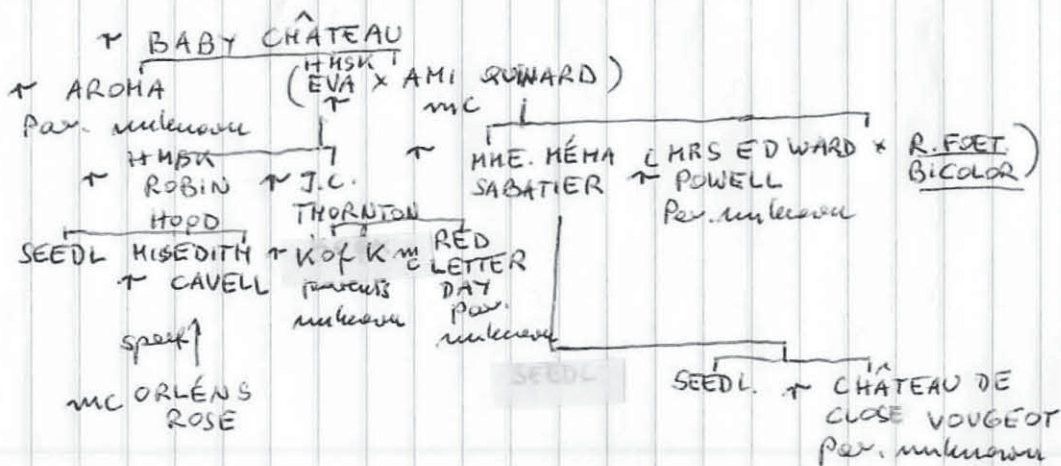 r BABY CHÂTEAU
r AROMA
Par. unknown
HMSK
(EVA x AMI QUINARD)
r mc
HMBK
r ROBIN
HOOD
r J.C.
THORNTON
r MME. MÉMA
SABATIER
(MRS EDWARD x R. FOET.
r POWELL BICOLOR)
Par. unknown
SEEDL MISEDITH
r CAVELL
r K of K
parents
unknown
mc RED
LETTER
DAY
Par.
unknown
sport
mc ORLÉNS
ROSE
SEEDL
SEEDL. r CHÂTEAU DE
CLOSE VOUGEOT
Par. unknown